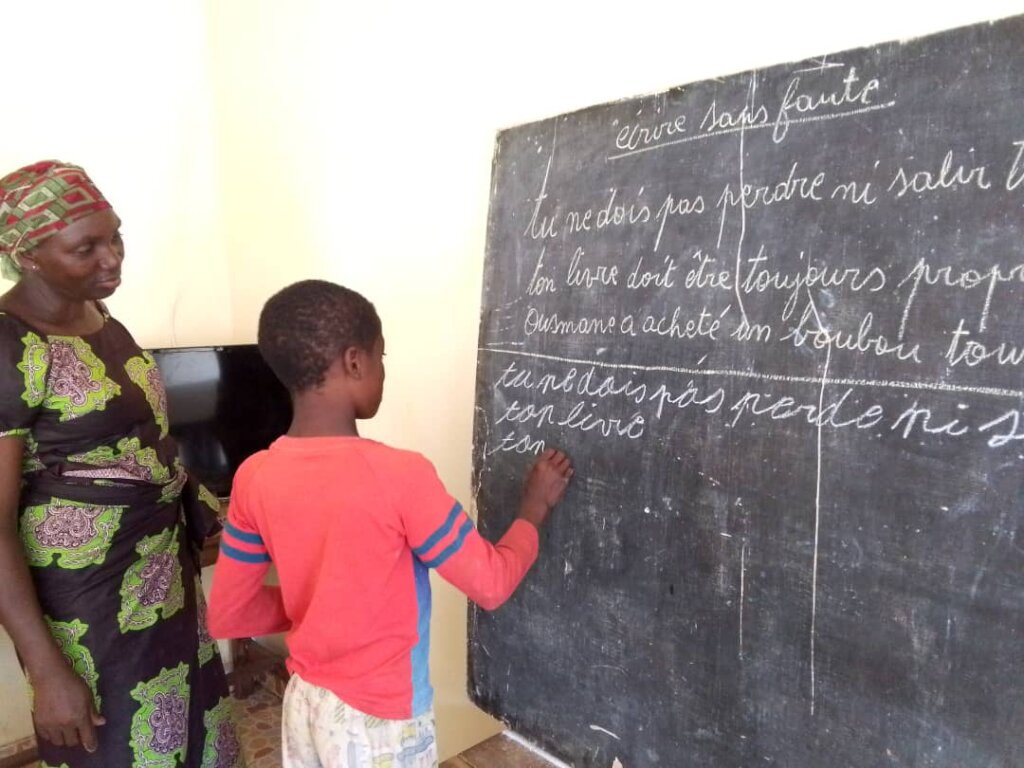 écrire sans faute
tu ne dois pas perdre ni salir
ton livre doit être toujours propr
Ousmane a acheté un boubou tou
tu ne dois pas perde ni s
ton livre
ton